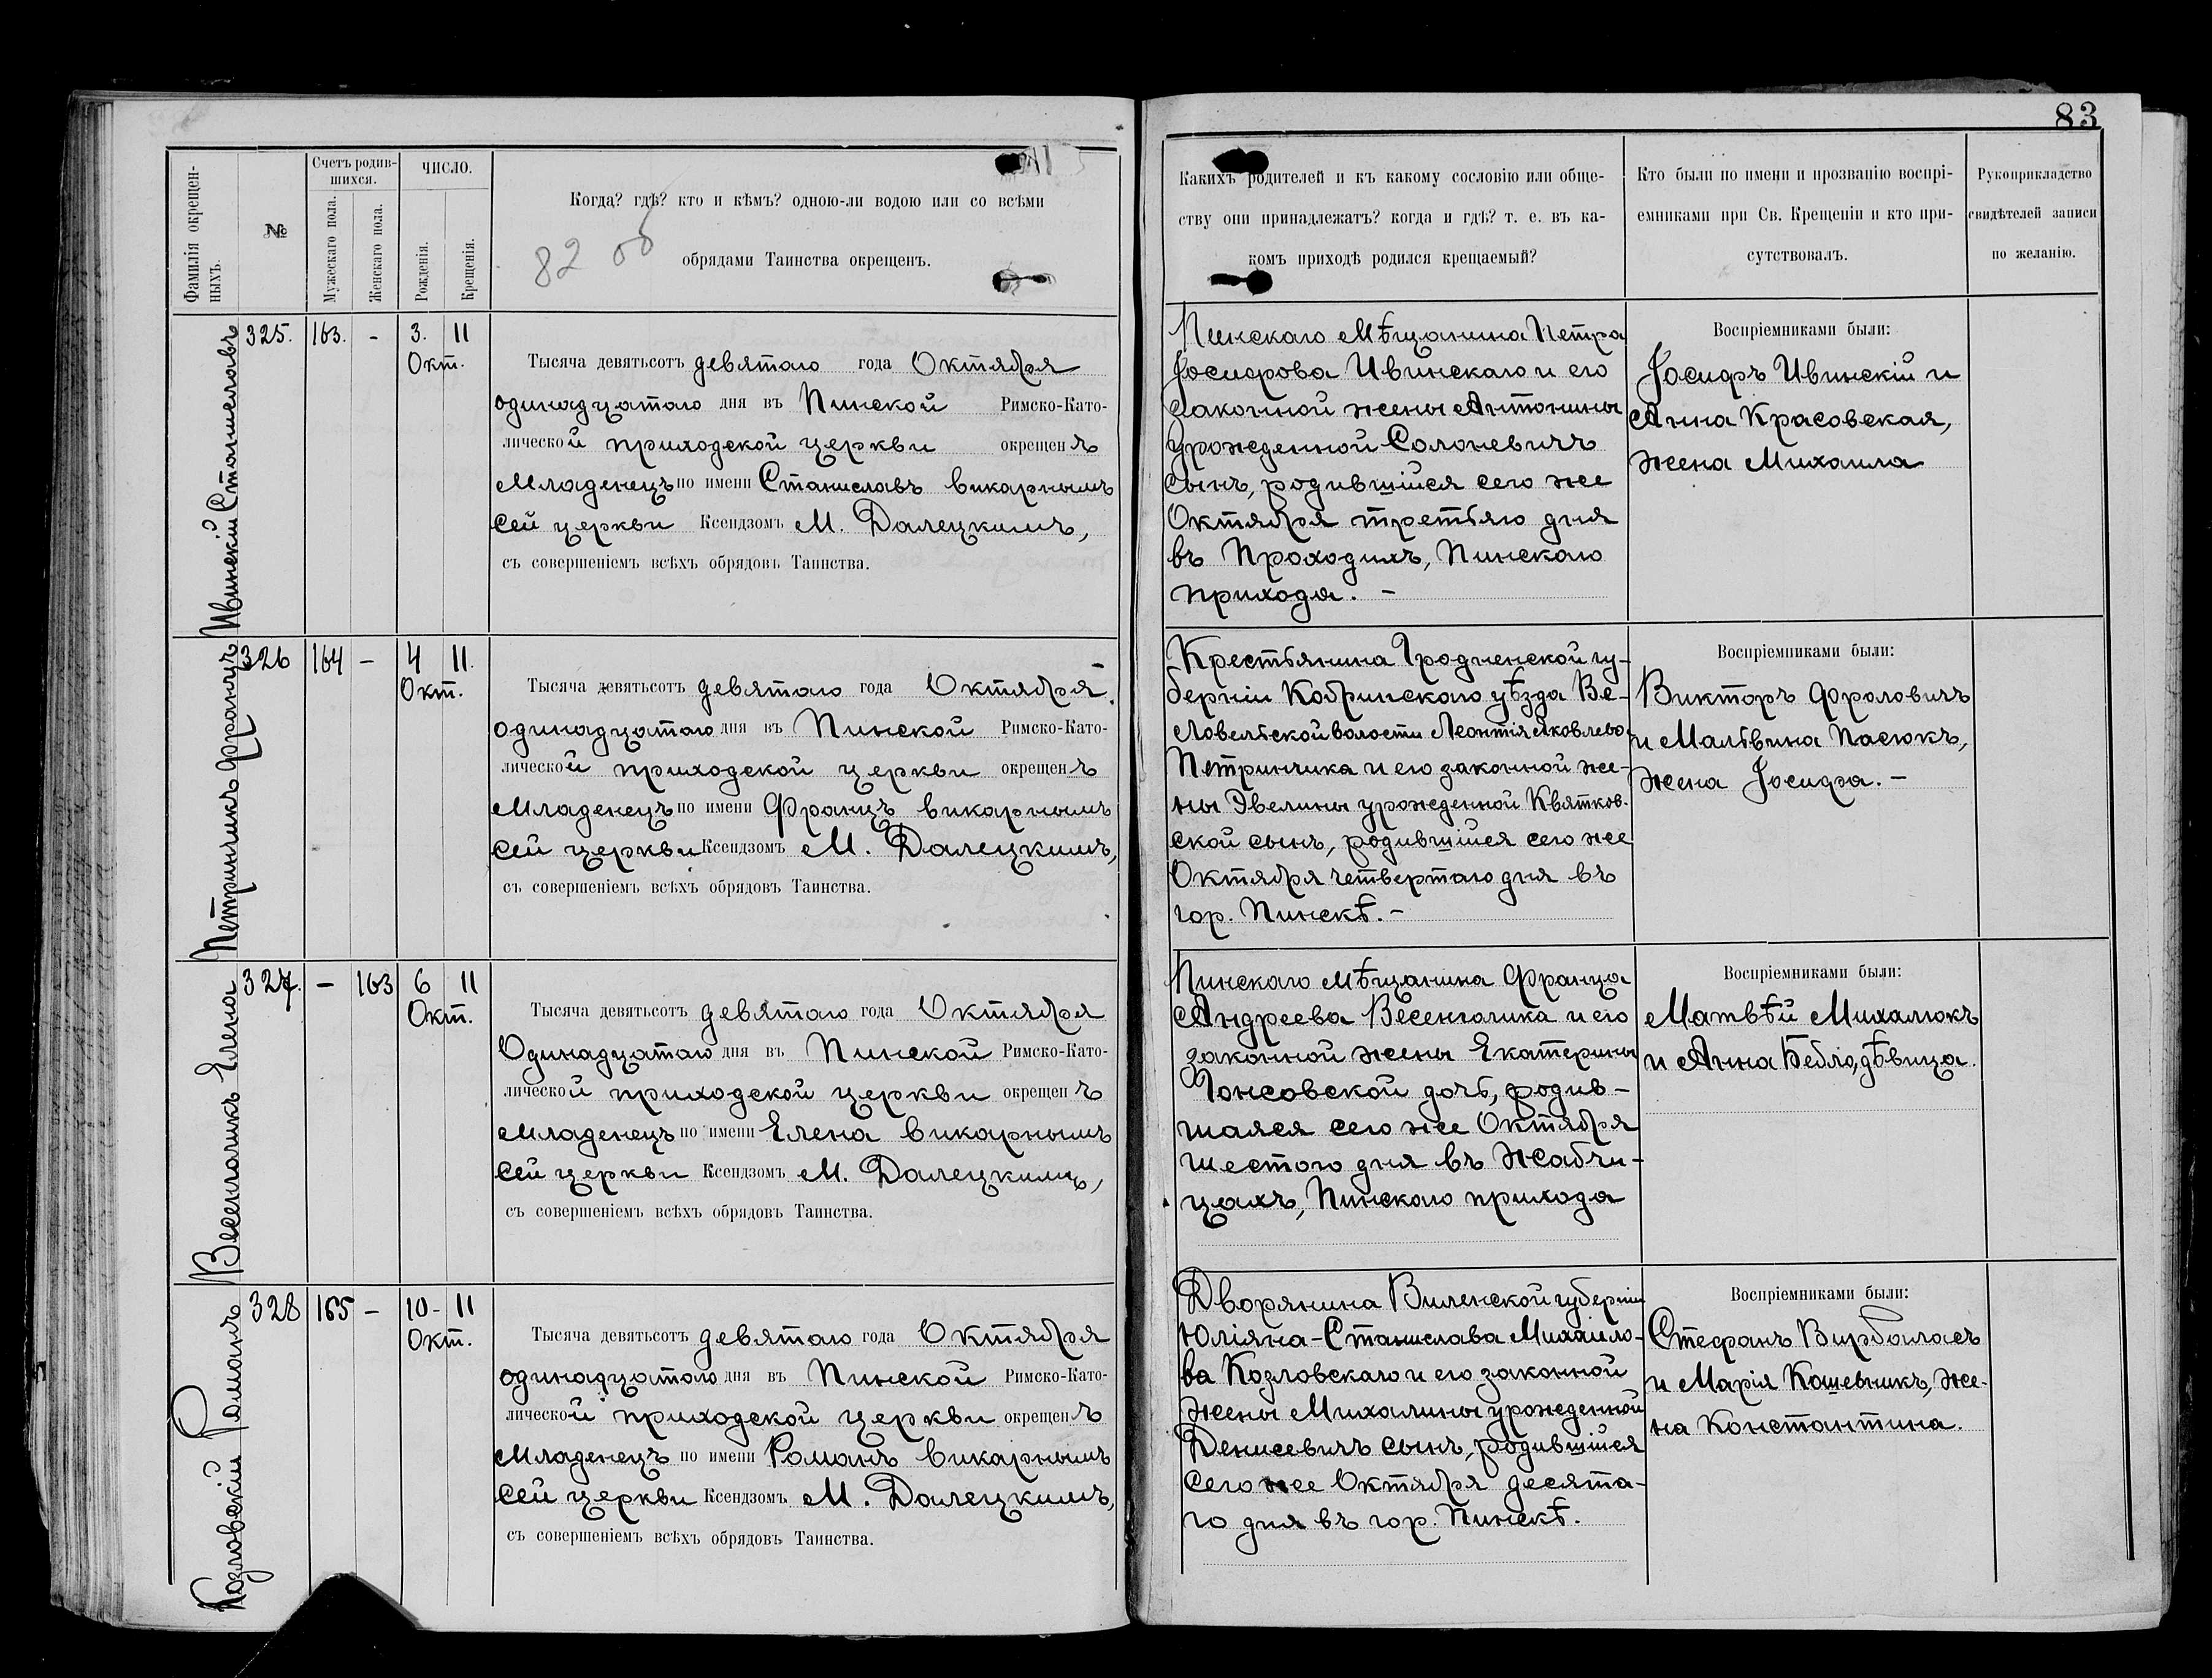 83
Фамилія окрещен-
ныхъ.
№
Счетъ родив-
шихся.
Мужескаго пола.
Женскаго пола.
ЧИСЛО.
Рожденія.
Крещенія.
Когда? гдѣ? кто и кѣмъ? одною-ли водою или со всѣми
обрядами Таинства окрещенъ.
82 об
Какихъ родителей и къ какому сословію или обще-
ству они принадлежатъ? когда и гдѣ? т. е. въ ка-
комъ приходѣ родился крещаемый?
Кто были по имени и прозванію воспрі-
емниками при Св. Крещеніи и кто при-
сутствовалъ.
Рукоприкладство
свидѣтелей записи
по желанію.
Ивинскій Станиславъ
325. 163. - 3. 11
Окт.
Тысяча девятьсотъ девятаго года Октября
одинадцатаго дня въ Пинской Римско-Като-
лической приходской церкви окрещенъ
Младенецъ по имени Станиславъ викарнымъ
сей церкви Ксендзомъ М. Далецкимъ,
съ совершеніемъ всѣхъ обрядовъ Таинства.
Пинскаго Мѣщанина Петра
Іосифова Ивинскаго и его
законной жены Антонины
урожденной Солоневичъ
сынъ, родившійся сего же
Октября третьяго дня
въ Проходихъ, Пинскаго
прихода. -
Воспріемниками были:
Іосифъ Ивинскій и
Анна Красовская,
жена Михаила
Петринчикъ Францъ
326 164 - 4 11.
Окт.
Тысяча девятьсотъ девятаго года Октября
одинадцатаго дня въ Пинской Римско-Като-
лической приходской церкви окрещенъ
Младенецъ по имени Францъ викарнымъ
сей церкви Ксендзомъ М. Далецкимъ,
съ совершеніемъ всѣхъ обрядовъ Таинства.
Крестьянина Гродненской гу-
берніи Кобринскаго уѣзда Ве-
ловельской волости Леонтія Яковлево
Петринчика и его законной же-
ны Эвелины урожденной Квятков-
ской сынъ, родившійся сего же
Октября четвертаго дня въ
гор. Пинскѣ. -
Воспріемниками были:
Викторъ Фроловичъ
и Мальвина Пасюкъ,
жена Іосифа. -
Весенголикъ Елена
327. - 163 6 11
Окт.
Тысяча девятьсотъ девятаго года Октября
Одинадцатаго дня въ Пинской Римско-Като-
лической приходской церкви окрещенъ
Младенецъ по имени Елена викарнымъ
сей церкви Ксендзомъ М. Далецкимъ,
съ совершеніемъ всѣхъ обрядовъ Таинства.
Пинскаго мѣщанина Франца
Андреева Весенголика и его
законной жены Екатерины
Гонсовской дочь, родив-
шаяся сего же Октября
шестого дня въ Жабчи-
цахъ, Пинскаго прихода
Воспріемниками были:
Матвѣй Михалюкъ
и Анна Бебло, дѣвица.
Козловскій Романъ
328 165 - 10 - 11
Окт.
Тысяча девятьсотъ девятаго года Октября
одинадцатаго дня въ Пинской Римско-Като-
лической приходской церкви окрещенъ
Младенецъ по имени Романъ викарнымъ
сей церкви Ксендзомъ М. Далецкимъ,
съ совершеніемъ всѣхъ обрядовъ Таинства.
Дворянина Виленской губерніи
Юліяна-Станислава Михаило-
ва Козловскаго и его законной
жены Михалины урожденной
Денисевичъ сынъ, родившійся
сего же Октября десята-
го дня въ гор. Пинскѣ.
Воспріемниками были:
Стефанъ Вирбаласъ
и Марія Кошевникъ, же-
на Константина.